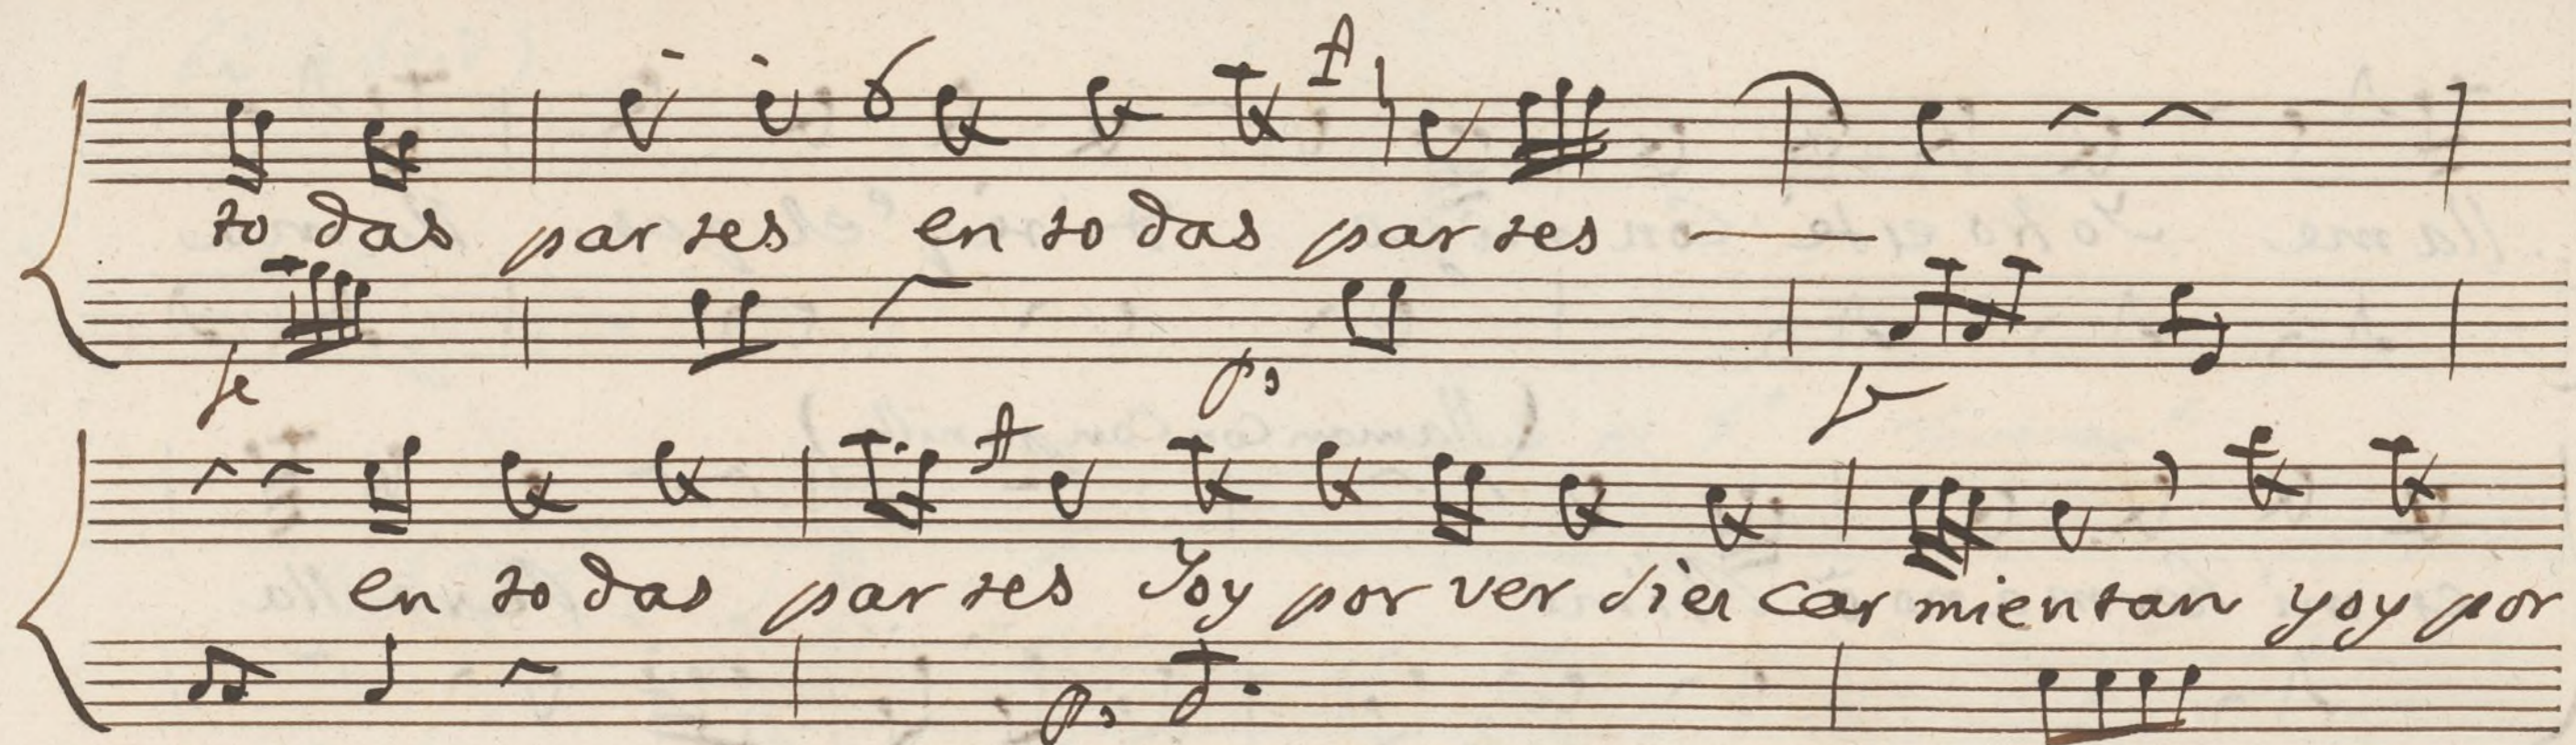 to das par tes en to das par tes
fe p.
fe
en to das par tes Yoy por ver si es car mien tan y oy por
p.